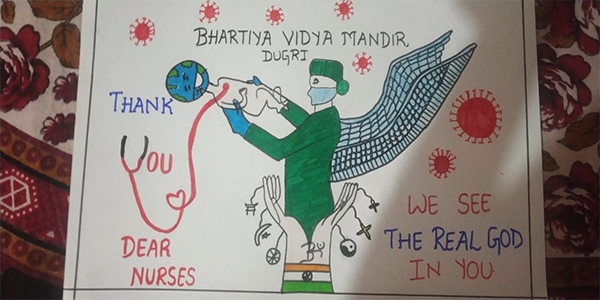 BHARTIYA VIDYA MANDIR
DUGRI
THANK
YOU
DEAR
NURSES
WE SEE
THE REAL GOD
IN YOU